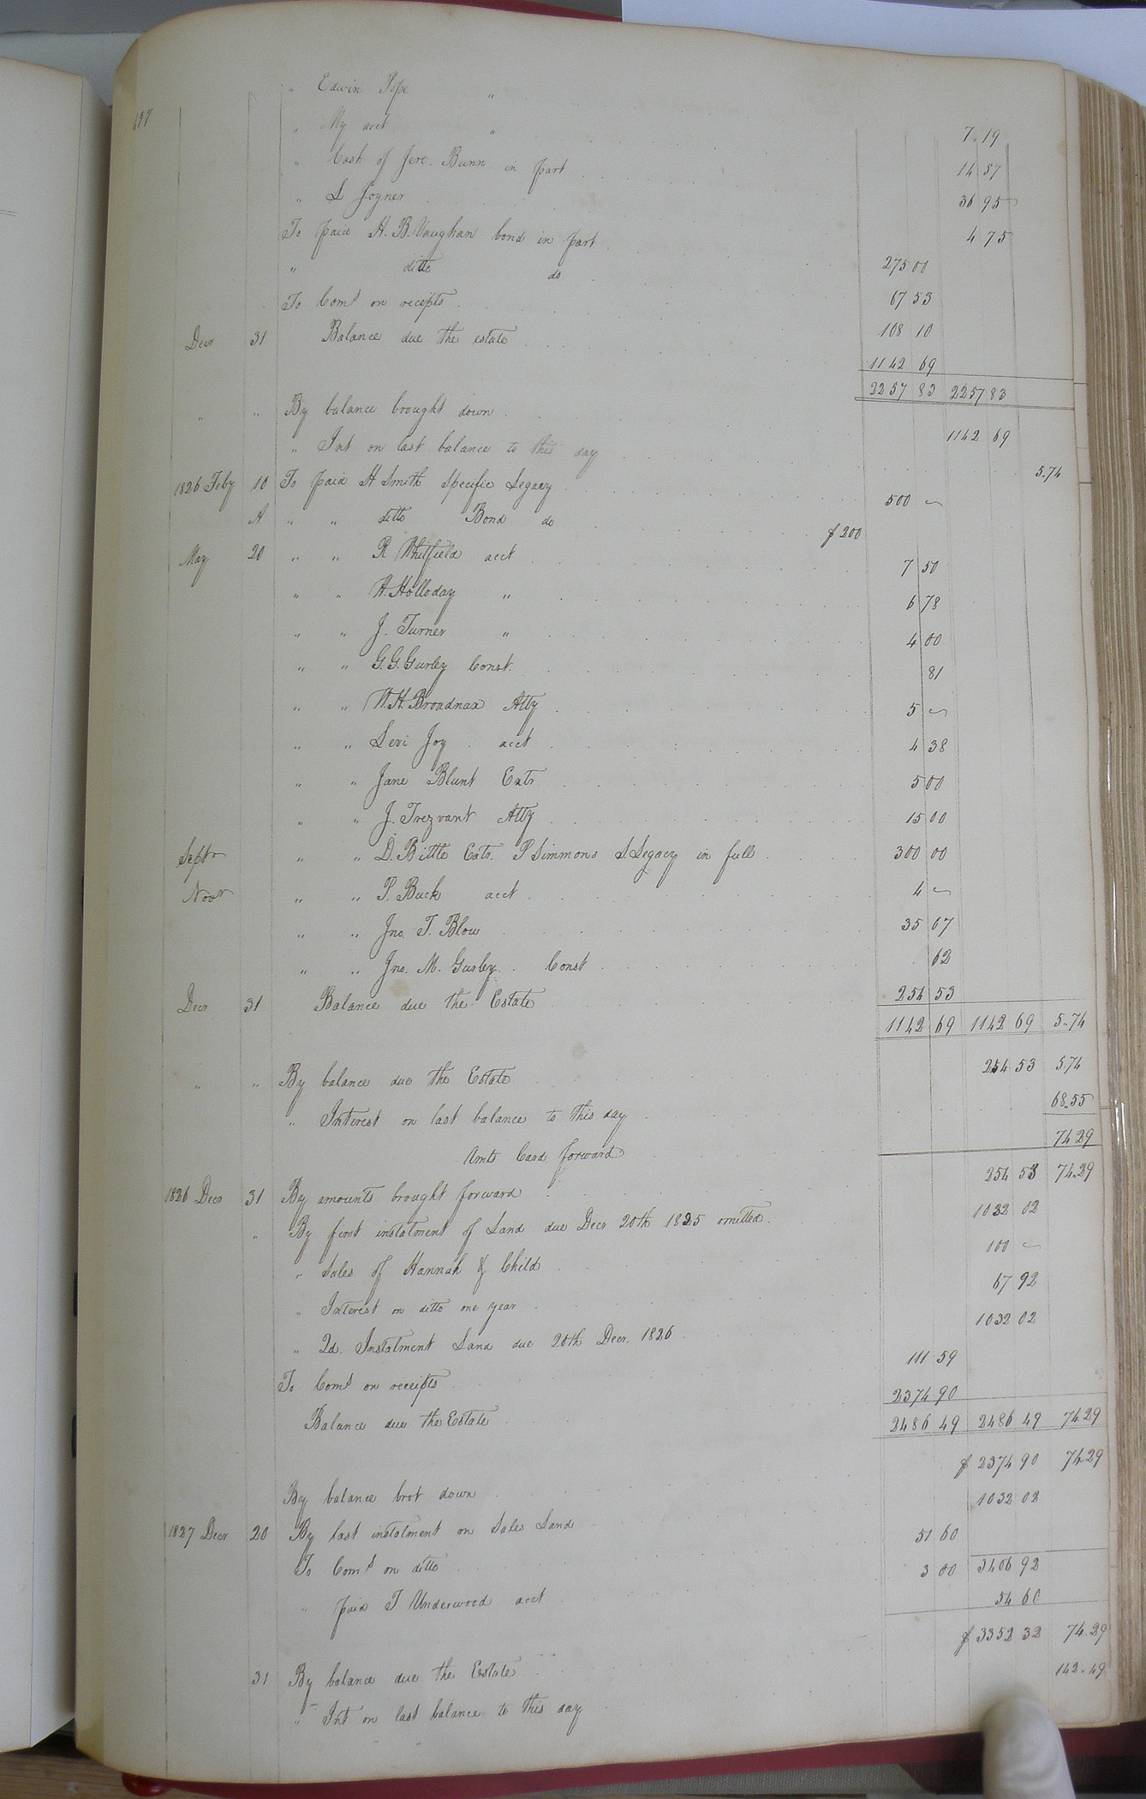 " Edwin Pope "
" My acct " 7.19
" Cash of Jere. Bunn in part 14 57
" L Joyner 36 95
To paid H. B. Vaughan bond in part 4 75
" ditto do 275 00
To Coms on receipts 67 53
Decr 31 Balance due the estate 108 10
1142 69
2257 83 2257 83
" " By balance brought down 1142 69
" Int on last balance to this day 5.74
1826 Feby 10 To paid H Smith Specific Legacy 500 ~
A " " ditto Bond do $200
May 20 " " R Whitfield acct 7 50
" " H. Holloday " 6 78
" " J. Turner " 4 00
" " G. G. Gurley Const. 81
" " W. H. Broadnax Atty 5 ~
" " Levi Joy acct 4 38
" " Jane Blunt Extr 5 00
" " J. Trezvant Atty 15 00
Septr " " D. Bittle Extr. P Simmons S Legacy in full 300 00
Novr " " P. Buck acct 4 ~
" " Jno. T. Blow 35 07
" " Jno. M. Gurley Const 62
Decr 31 Balance due the Estate 254 53
1142 69 1142 69 5.74
" " By balance due the Estate 254 53 5.74
" Interest on last balance to this day 68.55
74 29
Amts Card forward
1826 Decr 31 By amounts brought forward 254 53 74.29
" By first instalment of Land due Decr 20th 1825 omitted. 1032 02
" Sales of Hannah & Child 100 ~
" Interest on ditto one year 67 92
" 2d. Instalment Land due 20th Decr. 1826 1032 02
To Coms on receipts 111 59
Balance due the Estate 2374 90
2486 49 2486 49 74.29
By balance brot down $2374 90 74.29
1827 Decr 20 By last instalment on Sales Land 1032 02
To Coms on ditto 51 60
" paid T Underwood acct 3 00 3406 92
54 60
31 By balance due the Estate $3352 32 74.29
" Int on last balance to this day 142.49